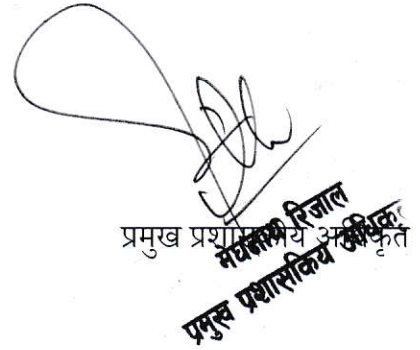 प्रमुख प्रशासकिय अधिकृत
मेघनाथ रिजाल
प्रमुख प्रशासकिय अधिकृत